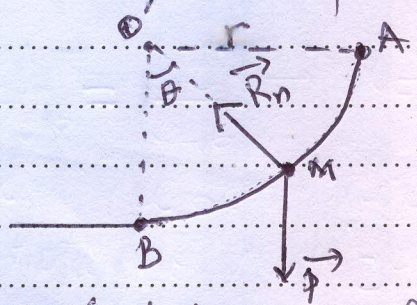 O r A
θ Rn
M
B
P